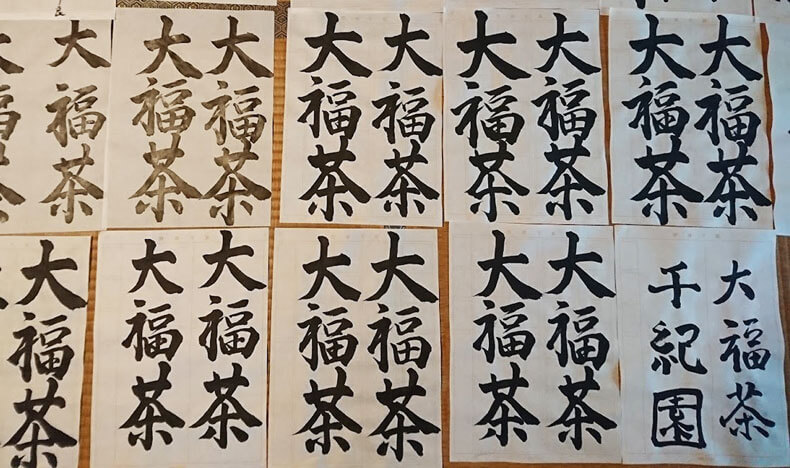 大福茶
大福茶
大福茶
大福茶
大福茶
大福茶
大福茶
大福茶
大福茶
大福茶
千紀園
大福茶
大福茶
大福茶
大福茶
大福茶
大福茶
大福茶